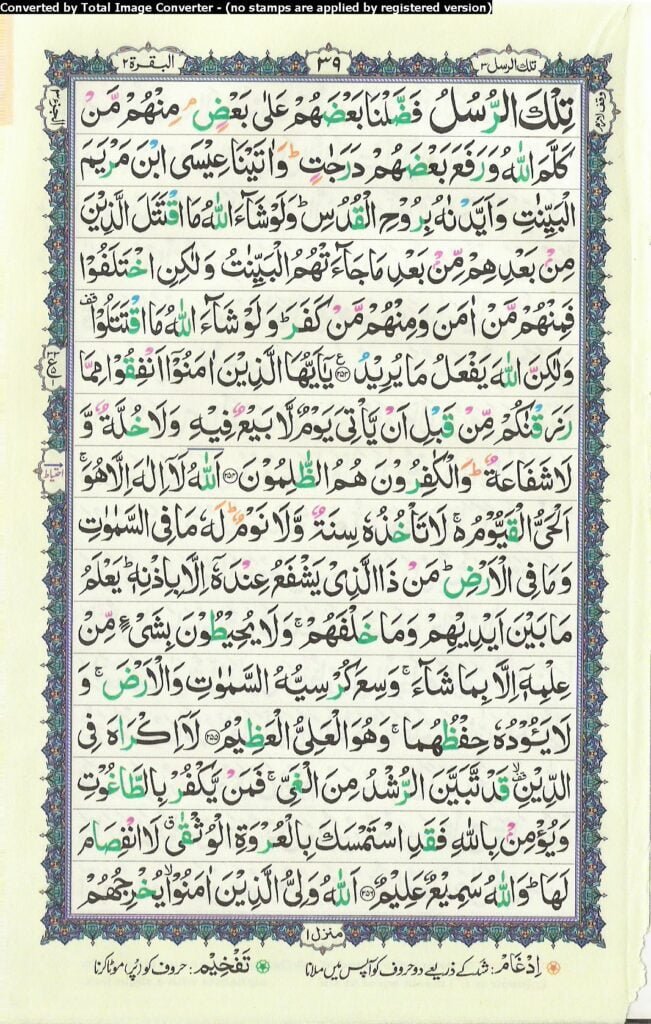 Converted by Total Image Converter - (no stamps are applied by registered version)
تلك الرسل ٣
٣٩
البقرة ٢
تِلْكَ الرُّسُلُ فَضَّلْنَا بَعْضَهُمْ عَلٰى بَعْضٍ ۘ مِنْهُمْ مَّنْ
كَلَّمَ اللّٰهُ وَرَفَعَ بَعْضَهُمْ دَرَجٰتٍ ؕ وَاٰتَيْنَا عِيْسَى ابْنَ مَرْيَمَ
الْبَيِّنٰتِ وَاَيَّدْنٰهُ بِرُوْحِ الْقُدُسِ ؕ وَلَوْ شَآءَ اللّٰهُ مَا اقْتَتَلَ الَّذِيْنَ
مِنْۢ بَعْدِهِمْ مِّنْۢ بَعْدِ مَا جَآءَتْهُمُ الْبَيِّنٰتُ وَلٰكِنِ اخْتَلَفُوْا
فَمِنْهُمْ مَّنْ اٰمَنَ وَمِنْهُمْ مَّنْ كَفَرَ ؕ وَلَوْ شَآءَ اللّٰهُ مَا اقْتَتَلُوْا
وَلٰكِنَّ اللّٰهَ يَفْعَلُ مَا يُرِيْدُ ﴿٢٥٣﴾ يٰۤاَيُّهَا الَّذِيْنَ اٰمَنُوْۤا اَنْفِقُوْا مِمَّا
رَزَقْنٰكُمْ مِّنْ قَبْلِ اَنْ يَّاْتِيَ يَوْمٌ لَّا بَيْعٌ فِيْهِ وَلَا خُلَّةٌ وَّ
لَا شَفَاعَةٌ ؕ وَالْكٰفِرُوْنَ هُمُ الظّٰلِمُوْنَ ﴿٢٥٤﴾ اَللّٰهُ لَاۤ اِلٰهَ اِلَّا هُوَ ۚ
اَلْحَيُّ الْقَيُّوْمُ ۚ لَا تَاْخُذُهٗ سِنَةٌ وَّلَا نَوْمٌ ؕ لَهٗ مَا فِي السَّمٰوٰتِ
وَمَا فِي الْاَرْضِ ؕ مَنْ ذَا الَّذِيْ يَشْفَعُ عِنْدَهٗۤ اِلَّا بِاِذْنِهٖ ؕ يَعْلَمُ
مَا بَيْنَ اَيْدِيْهِمْ وَمَا خَلْفَهُمْ ۚ وَلَا يُحِيْطُوْنَ بِشَيْءٍ مِّنْ
عِلْمِهٖۤ اِلَّا بِمَا شَآءَ ۚ وَسِعَ كُرْسِيُّهُ السَّمٰوٰتِ وَالْاَرْضَ ۚ وَ
لَا يَـُٔوْدُهٗ حِفْظُهُمَا ۚ وَهُوَ الْعَلِيُّ الْعَظِيْمُ ﴿٢٥٥﴾ لَاۤ اِكْرَاهَ فِي
الدِّيْنِ ۙ قَدْ تَّبَيَّنَ الرُّشْدُ مِنَ الْغَيِّ ۚ فَمَنْ يَّكْفُرْ بِالطَّاغُوْتِ
وَيُؤْمِنْۢ بِاللّٰهِ فَقَدِ اسْتَمْسَكَ بِالْعُرْوَةِ الْوُثْقٰى ۗ لَا انْفِصَامَ
لَهَا ؕ وَاللّٰهُ سَمِيْعٌ عَلِيْمٌ ﴿٢٥٦﴾ اَللّٰهُ وَلِيُّ الَّذِيْنَ اٰمَنُوْا ۙ يُخْرِجُهُمْ
احتیاط
منزل ١
اِدْغَام: شد کے ذریعے دو حروف کو آپس میں ملانا
تَفْخِيْم: حروف کو (پُر) موٹا کرنا